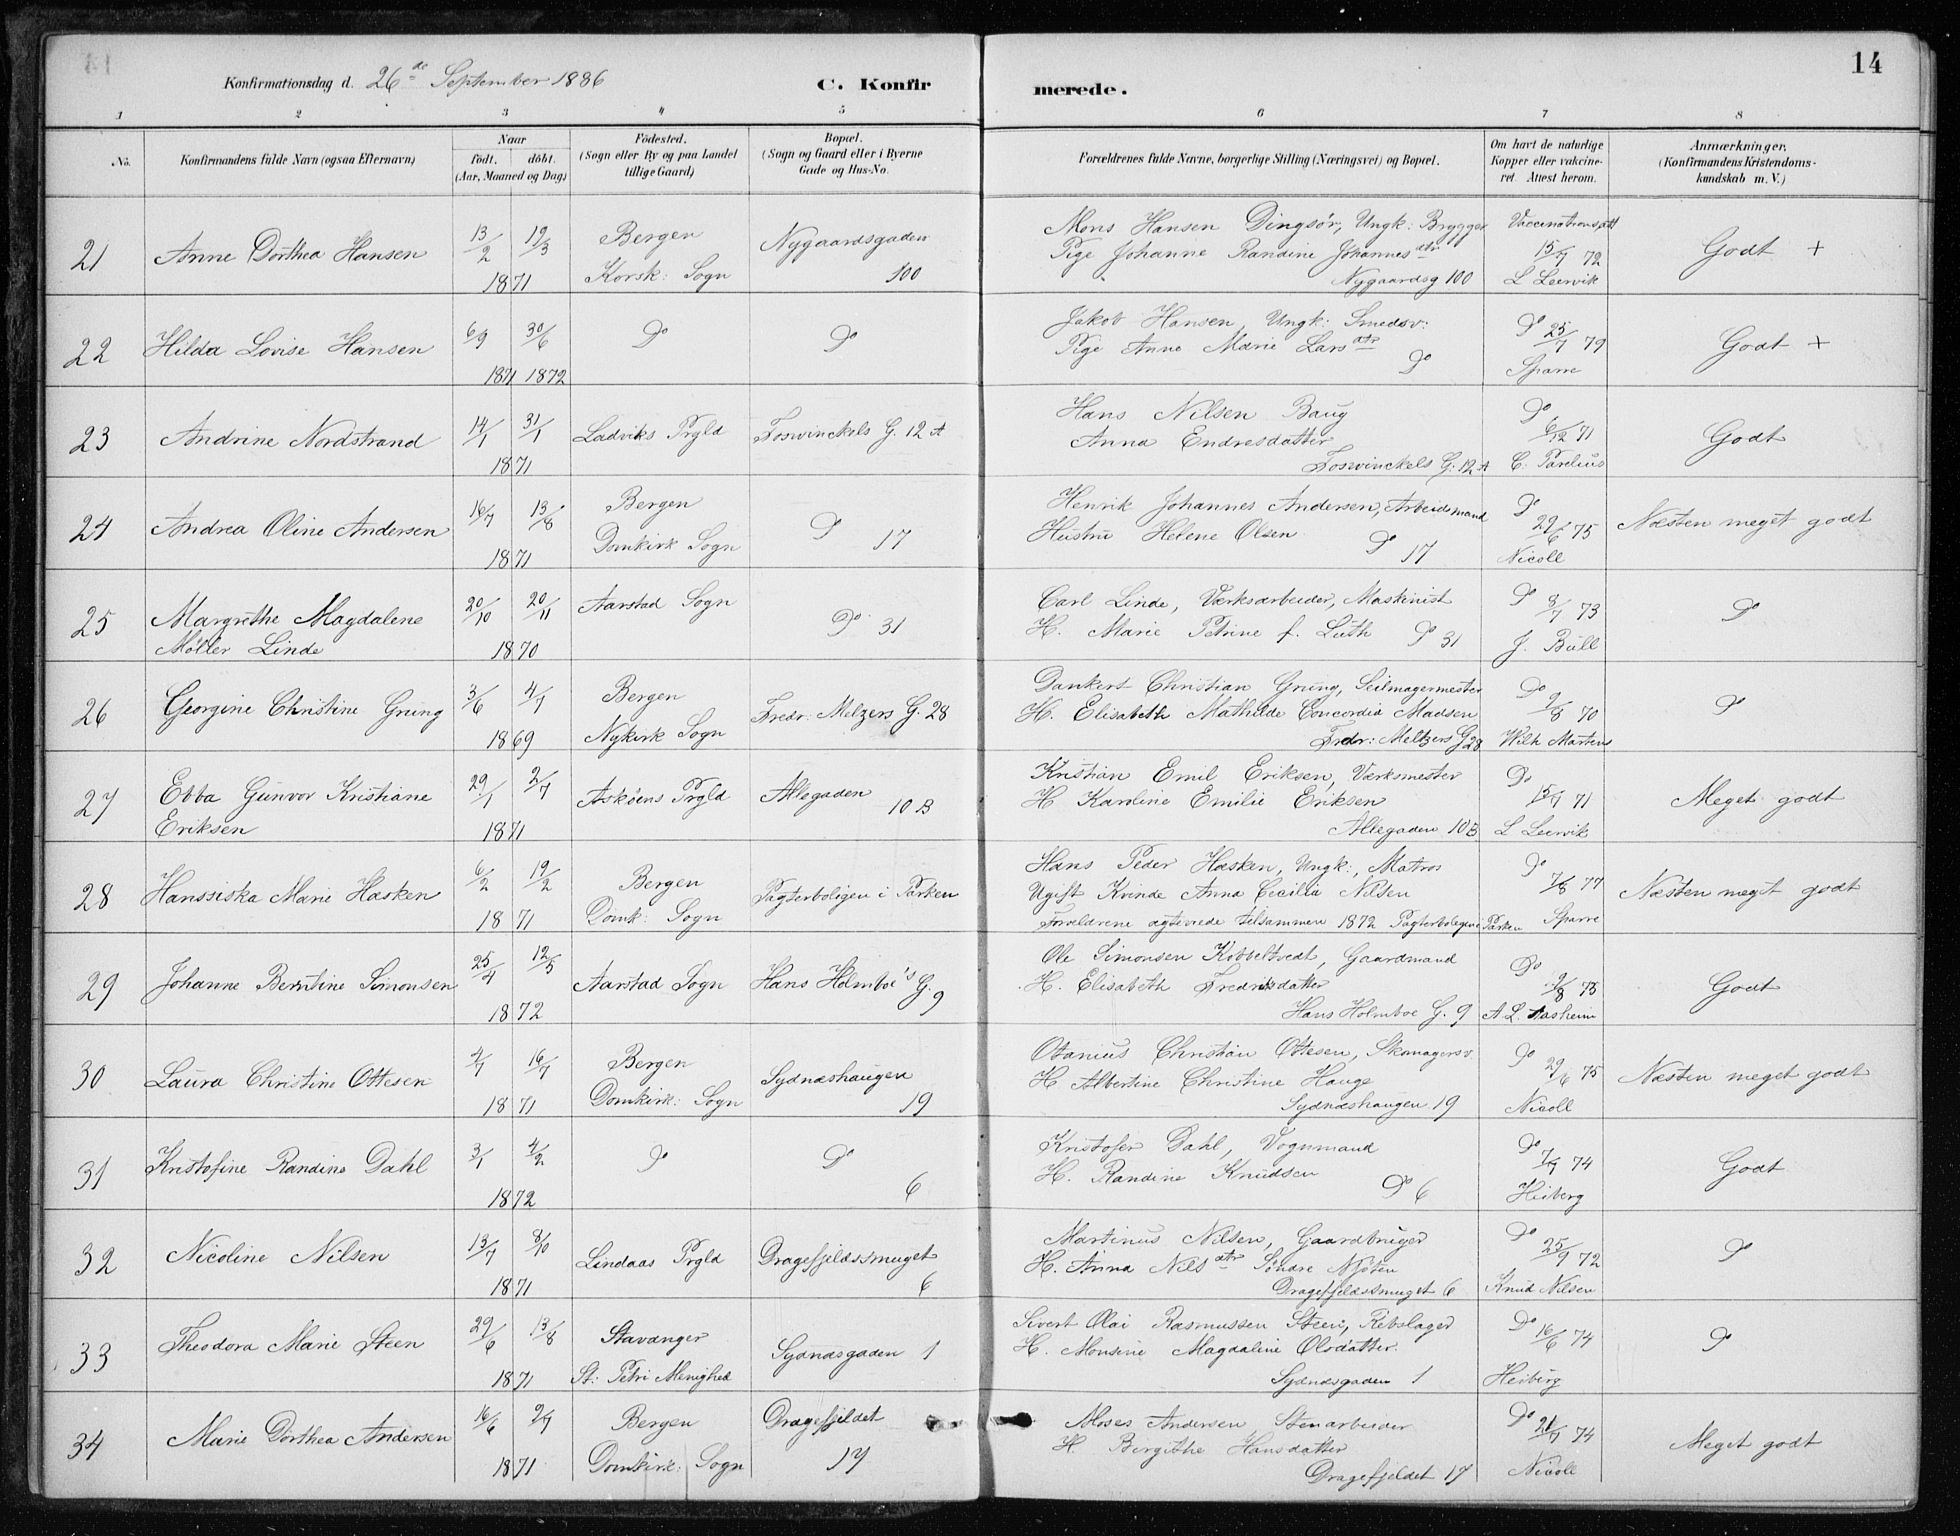 14
Konfirmationsdag d. 26de September 1886
C. Konfirmerede.
1 2 3 4 5 6 7 8
No.
Konfirmandens fulde Navn (ogsaa Efternavn)
Naar
født. døbt.
(Aar, Maaned og Dag)
Födested.
(Sogn eller By og paa Landet
tillige Gaard)
Bopæl.
(Sogn og Gaard eller i Byerne
Gade og Hus-No.
Forældrenes fulde Navne, borgerlige Stilling (Næringsvei) og Bopæl.
Om havt de naturlige
Kopper eller vakcine-
ret Attest herom.
Anmærkninger.
(Konfirmandens Kristendoms-
kundskab m.V.)
21 Anne Dorthea Hansen 13/2 19/3 1871 Bergen Korsk: Sogn Nygaardsgaden 100
Mons Hansen Dingsör, Ungk: Brygger
Pige Johanne Randine Johannesdtr
Nygaardsg 100
Vaccinationsatt 15/7 72 L Leervik
Godt +
22 Hilda Lovise Hansen 6/9 30/6 1871 1872 Do Do
Jakob Hansen Ungk: Smedsv:
Pige Anne Marie Larsdtr Do
Do 25/7 79 Sparre
Godt +
23 Andrine Nordstrand 14/1 31/1 1871 Ladviks Prgld Foswinckels G. 12 A
Hans Nilsen Baug
Anna Endresdatter
Foswinckels G. 12 A
Do 6/12 71 C. Parelius
Godt
24 Andrea Oline Andersen 16/7 13/8 1871 Bergen Domkirk Sogn Do 17
Henrik Johannes Andersen, Arbeidsmand
Hustru Helene Olsen Do 17
Do 29/6 75 Nicoll
Næsten meget godt
25 Margrethe Magdalene
Möller Linde 20/10 20/11 1870 Aarstad Sogn Do 31
Carl Linde, Værksarbeider, Maskinist
H. Marie Petrine f. Lüth Do 31
Do 8/7 73 J. Bull
Do
26 Georgine Christine Grung 3/6 4/7 1869 Bergen Nykirk Sogn Fredr: Melzers G. 28
Dankert Christian Grung, Seilmagermester
H. Elisabeth Mathilde Concordia Madsen
Fredr: Meltzers G 28
Do 9/8 70 Wilh Martens
Do
27 Ebba Gunvor Kristiane
Eriksen 29/1 2/7 1871 Askøens Prgld Allegaden 10 B
Kristian Emil Eriksen, Værksmester
H Karoline Emilie Eriksen
Allegaden 10 B
Do 15/7 71 L Leervik
Meget godt
28 Hanssiska Marie Hasken 6/2 19/2 1871 Bergen Domk: Sogn Pagterboligen i Parken
Hans Peder Hasken, Ungk:, Matros
Ugift Kvinde Anna Cecilia Nilsen
Forældrene ægteviede tilsammen 1872 Pagterboligen i Parken
Do 7/8 77 Sparre
Næsten meget godt
29 Johanne Berntine Simonsen 25/4 12/5 1872 Aarstad Sogn Hans Holmboe's G. 9
Ole Simonsen Kobbeltvedt, Gaardmand
H. Elisabeth Fredriksdatter
Hans Holmboe G. 9
Do 9/8 75 A. L. Aasheim
Godt
30 Laura Christine Ottesen 4/7 16/7 1871 Bergen Domkirk: Sogn Sydnæshaugen 19
Otanius Christian Ottesen, Skomagersv.
H Albertine Christine Hauge
Sydnæshaugen 19
Do 29/6 75 Nicoll
Næsten meget godt
31 Kristofine Randine Dahl 3/1 4/2 1872 Do Do 6
Kristofer Dahl, Vognmand
H. Randine Knudsen Do 6
Do 7/7 74 Heiberg
Godt
32 Nicoline Nilsen 13/7 8/10 1871 Lindaas Prgld Dragefjeldssmuget 6
Martinus Nilsen, Gaardbruger
H. Anna Nilsdtr Söndre Njöten
Dragefjeldssmuget 6
Do 25/9 72 Knud Nilsen
Do
33 Theodora Marie Steen 29/6 13/8 1871 Stavanger St: Petri Menighed Sydnæsgaden 1
Sivert Olai Rasmussen Steen, Rebslager
H. Monsine Magdaline Olsdatter.
Sydnæsgaden 1
Do 16/6 74 Heiberg
Do
34 Marie Dorthea Andersen 16/6 9/7 1871 Bergen Domkirk: Sogn Dragefjeldet 17
Moses Andersen Stenarbeider
H Bergithe Hansdatter
Dragefjeldet 17
Do 21/7 74 Nicoll
Meget godt